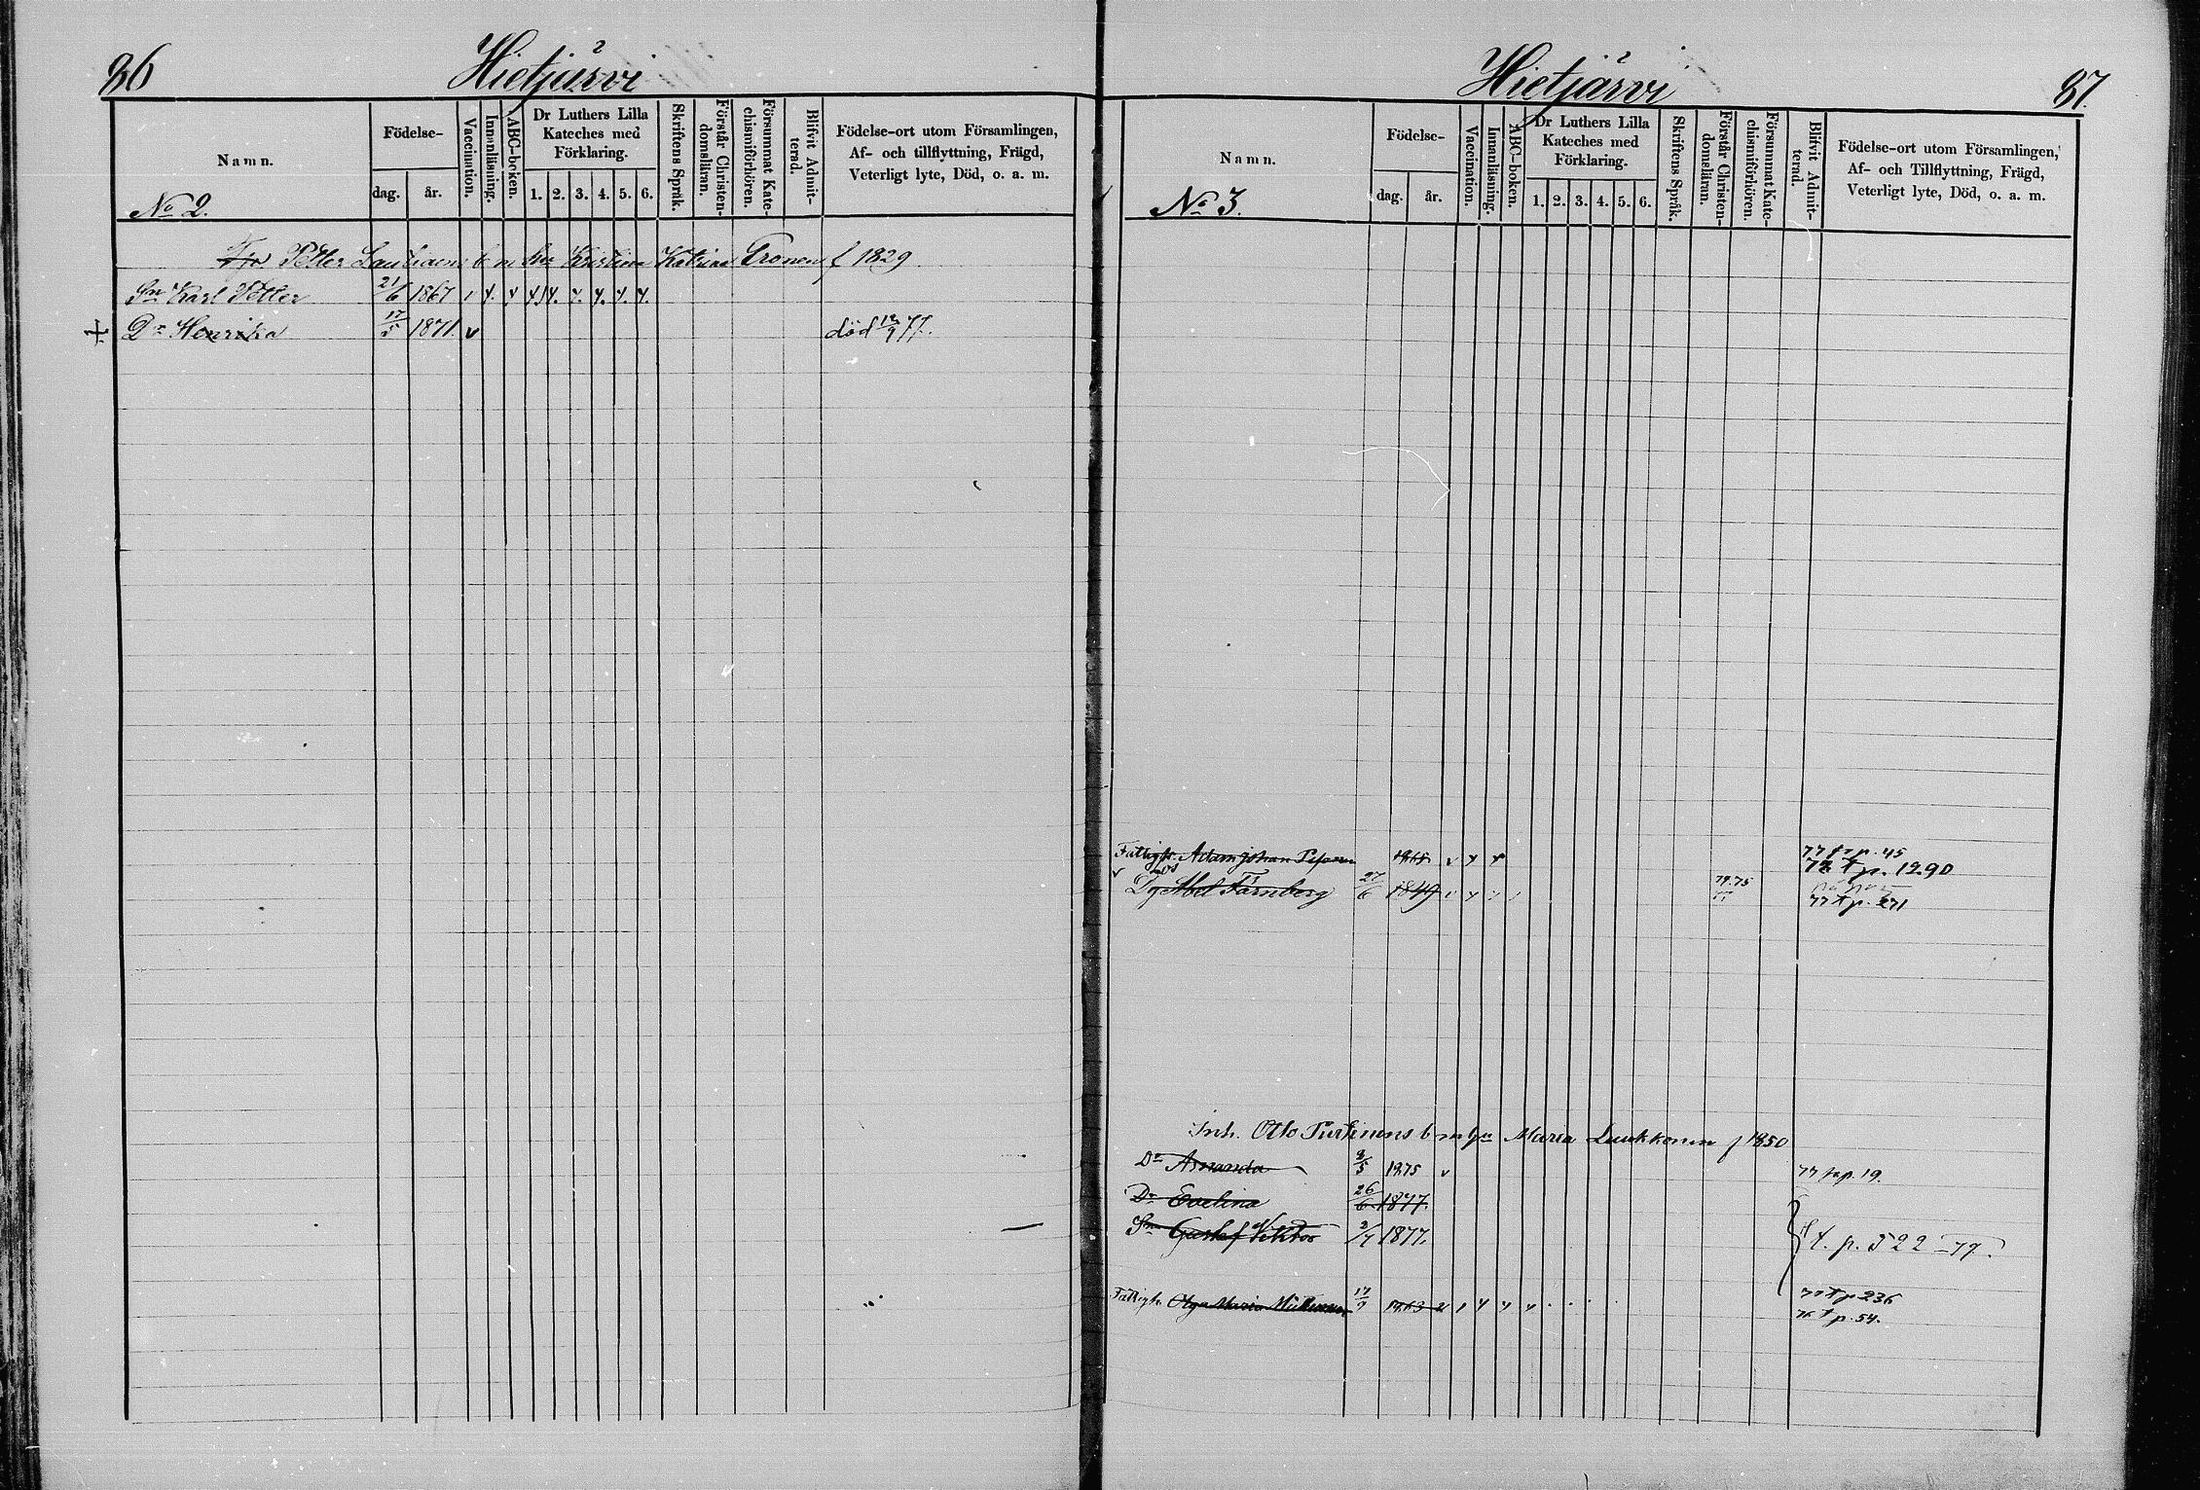 86
Hietjärvi
Namn.
Födelse-
dag.
år.
Vaccination.
Innanläsning.
ABC-boken.
Dr Luthers Lilla
Kateches med
Förklaring.
1. 2. 3. 4. 5. 6.
Skriftens Språk.
Förstår Christen-
domsläran.
Försummat Kate-
chismiförhören.
Blifvit Admit-
terad.
Födelse-ort utom Församlingen,
Af- och tillflyttning, Frägd,
Veterligt lyte, Död, o. a. m.
No 2.
Petter b m Kristina Katrina f 1829
Sn Karl Petter 21/6 1867
Dr Henrika 17/5 1871. v död 12/9 77.
Hietjärvi
87.
Namn.
Födelse-
dag.
år.
Vaccination.
Innanläsning.
ABC-boken.
Dr Luthers Lilla
Kateches med
Förklaring.
1. 2. 3. 4. 5. 6.
Skriftens Språk.
Förstår Christen-
domsläran.
Försummat Kate-
chismiförhören.
Blifvit Admit-
terad.
Födelse-ort utom Församlingen,
Af- och Tillflyttning, Frägd,
Veterligt lyte, Död, o. a. m.
No 3.
Adam Johan p. 45
p. 1290
Abel Färnberg 27/6 1849 77 p. 271
Inh. Otto b m Maria Luukkonen f 1850
Dr Amanda 8/5 1875 v 77 p. 19.
Dr Evelina 26/6 1877.
Sn Gustaf Viktor 2/7 1877. p. 522 - 77.
Olga Maria 17/9 1863 77 p 236
76 p. 54.